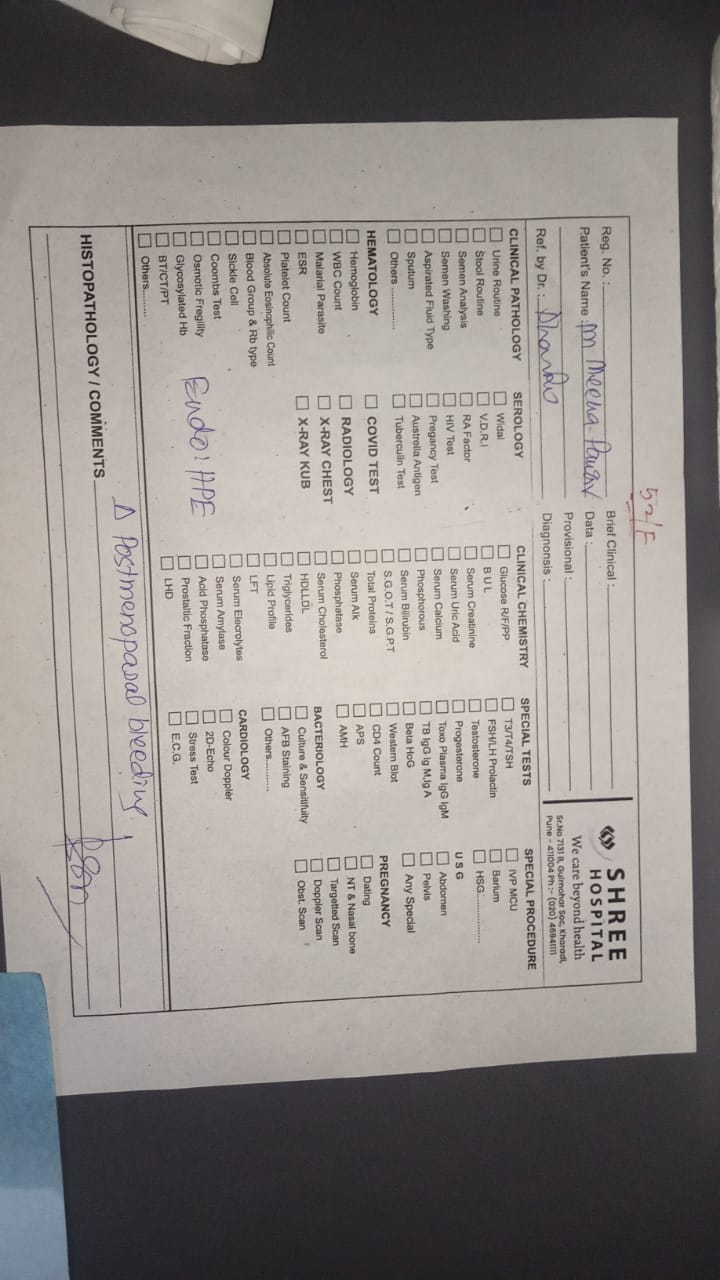 52/F
SHREE
HOSPITAL
We care beyond health
Sr.No 7131 B, Gulmohar Soc, Kharadi,
Pune - 411004 Ph :- (020) 46941111
Reg. No. :
Patient's Name : m Meena Pawar
Ref. by Dr. :
Brief Clinical :
Data :
Provisional :
Diagnonsis :
CLINICAL PATHOLOGY
Urine Routine
Stool Routine
Semen Analysis
Semen Washing
Aspirated Fluid Type
Sputum
Others ..............
HEMATOLOGY
Hemoglobin
WBC Count
Malarial Parasite
ESR
Platelet Count
Absolute Eosinophilic Count
Blood Group & Rb type
Sickle Cell
Coombs Test
Osmotic Fregility
Glycosylated Hb
BT/CT/PT
Others.........
SEROLOGY
Widal
V.D.R.I
RA Factor
HIV Test
Pregancy Test
Australia Antigen
Tuberculin Test
COVID TEST
RADIOLOGY
X-RAY CHEST
X-RAY KUB
Endo: HPE
CLINICAL CHEMISTRY
Glucose R/F/PP
B U L
Serum Creatinine
Serum Uric Acid
Serum Calcium
Phosphorous
Serum Bilirubin
S.G.O.T / S.G.P.T
Total Proteins
Serum Alk
Phosphatase
Serum Cholesterol
HDLLDL
Triglycerides
Lipid Profile
LFT
Serum Elecrolytes
Serum Amylase
Acid Phosphatase
Prostaltic Fraction
LHD
SPECIAL TESTS
T3/T4/TSH
FSH/LH Prolactin
Testosterone
Progesterone
Toxo Plasma IgG IgM
TB IgG Ig M,Ig A
Beta HoG
Western Blot
CD4 Count
APS
AMH
BACTERIOLOGY
Culture & Sensitifuity
AFB Staining
Others..........
CARDIOLOGY
Colour Doppler
2D-Echo
Stress Test
E.C.G.
SPECIAL PROCEDURE
IVP MCU
Barium
HSG.................
U S G
Abdomen
Pelvis
Any Special
PREGNANCY
Dating
NT & Nasal bone
Targetted Scan
Doppler Scan
Obst. Scan
Δ Postmenopasal bleeding,
HISTOPATHOLOGY / COMMENTS